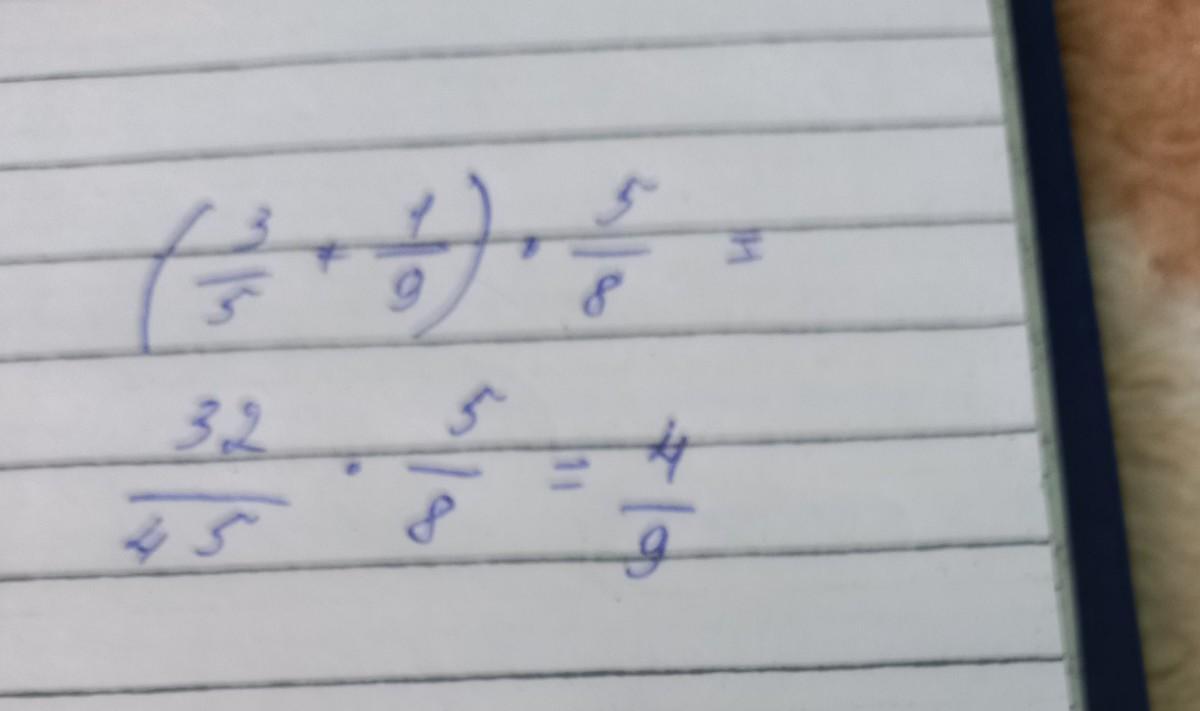 (3/5 + 1/9) · 5/8 =
32/45 · 5/8 = 4/9